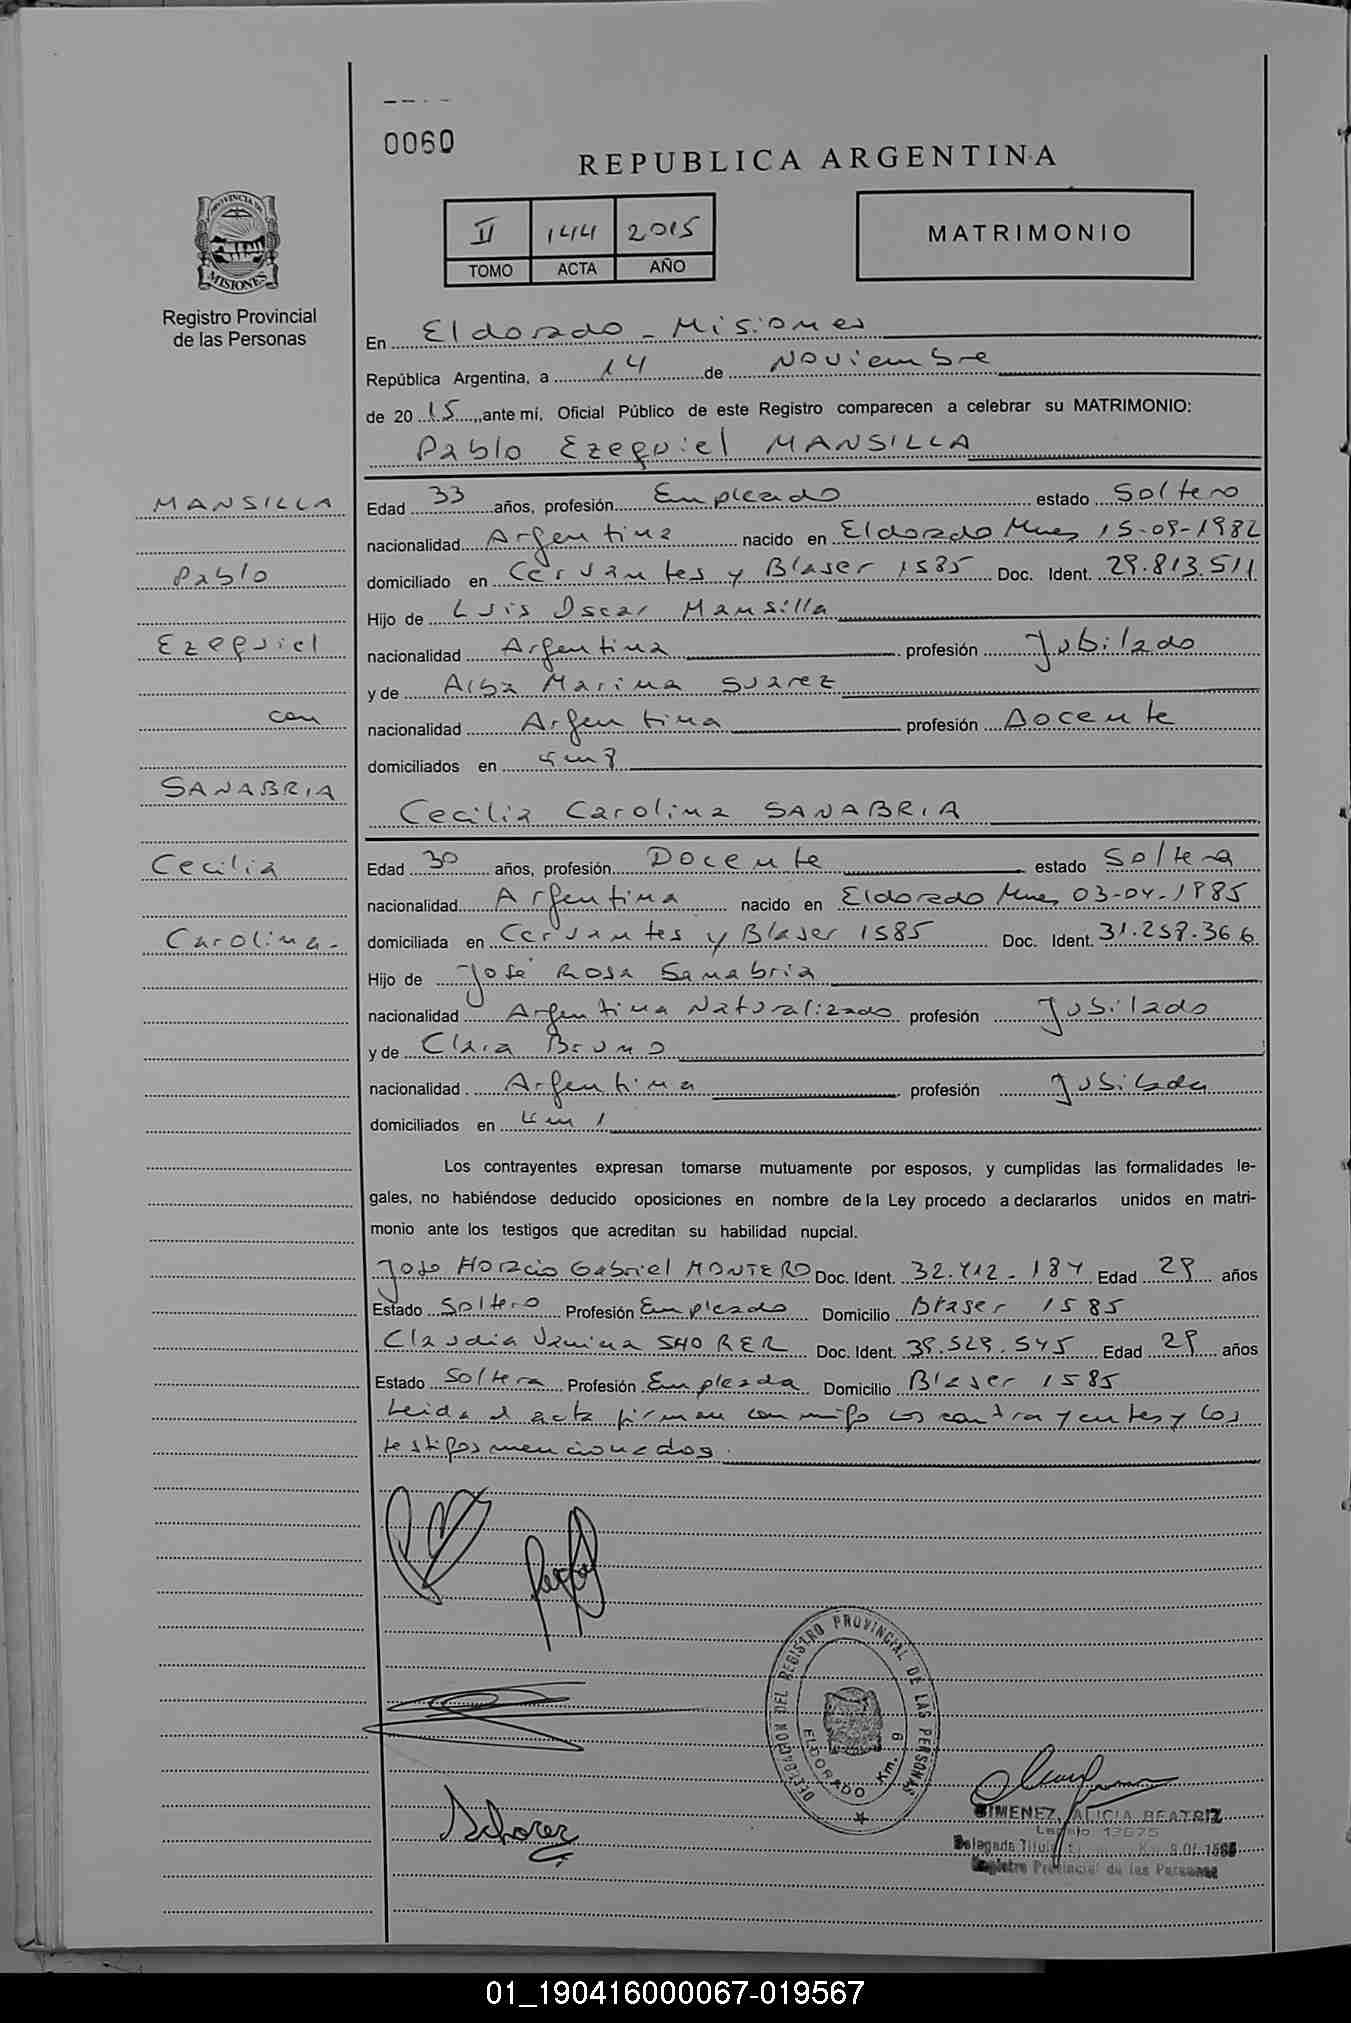 0060
REPUBLICA ARGENTINA
II 144 2015
TOMO ACTA AÑO
MATRIMONIO
PROVINCIA DE
MISIONES
Registro Provincial
de las Personas
En Eldorado - Misiones
República Argentina, a 14 de Noviembre
de 2015, ante mí, Oficial Público de este Registro comparecen a celebrar su MATRIMONIO:
Pablo Ezequiel MANSILLA
MANSILLA
Pablo
Ezequiel
con
SANABRIA
Cecilia
Carolina.-
Edad 33 años, profesión Empleado estado Soltero
nacionalidad Argentina nacido en Eldorado Mnes 15-09-1982
domiciliado en Cervantes y Blaser 1585 Doc. Ident. 29.813.511
Hijo de Luis Oscar Mansilla
nacionalidad Argentina profesión Jubilado
y de Alba Marina Suarez
nacionalidad Argentina profesión Docente
domiciliados en km 9
Cecilia Carolina SANABRIA
Edad 30 años, profesión Docente estado Soltera
nacionalidad Argentina nacido en Eldorado Mnes 03-04-1985
domiciliada en Cervantes y Blaser 1585 Doc. Ident. 31.259.366
Hijo de José Rosa Sanabria
nacionalidad Argentina Naturalizado profesión Jubilado
y de Clara Bruno
nacionalidad Argentina profesión Jubilada
domiciliados en km 1
Los contrayentes expresan tomarse mutuamente por esposos, y cumplidas las formalidades le-
gales, no habiéndose deducido oposiciones en nombre de la Ley procedo a declararlos unidos en matri-
monio ante los testigos que acreditan su habilidad nupcial.
Horacio Gabriel MONTERO Doc. Ident. 32.412.184 Edad 29 años
Estado Soltero Profesión Empleado Domicilio Blaser 1585
Claudia Vanina SHORER Doc. Ident. 39.529.545 Edad 29 años
Estado Soltera Profesión Empleada Domicilio Blaser 1585
Leida el acta firman conmigo los contrayentes y los
testigos mencionados.
DELEGACION DEL REGISTRO PROVINCIAL DE LAS PERSONAS
ELDORADO Km. 9
Schorer
GIMENEZ, ALICIA BEATRIZ
Legajo 13675
Delegada Titular Km. 9 Of. 1585
Registro Provincial de las Personas
01_190416000067-019567